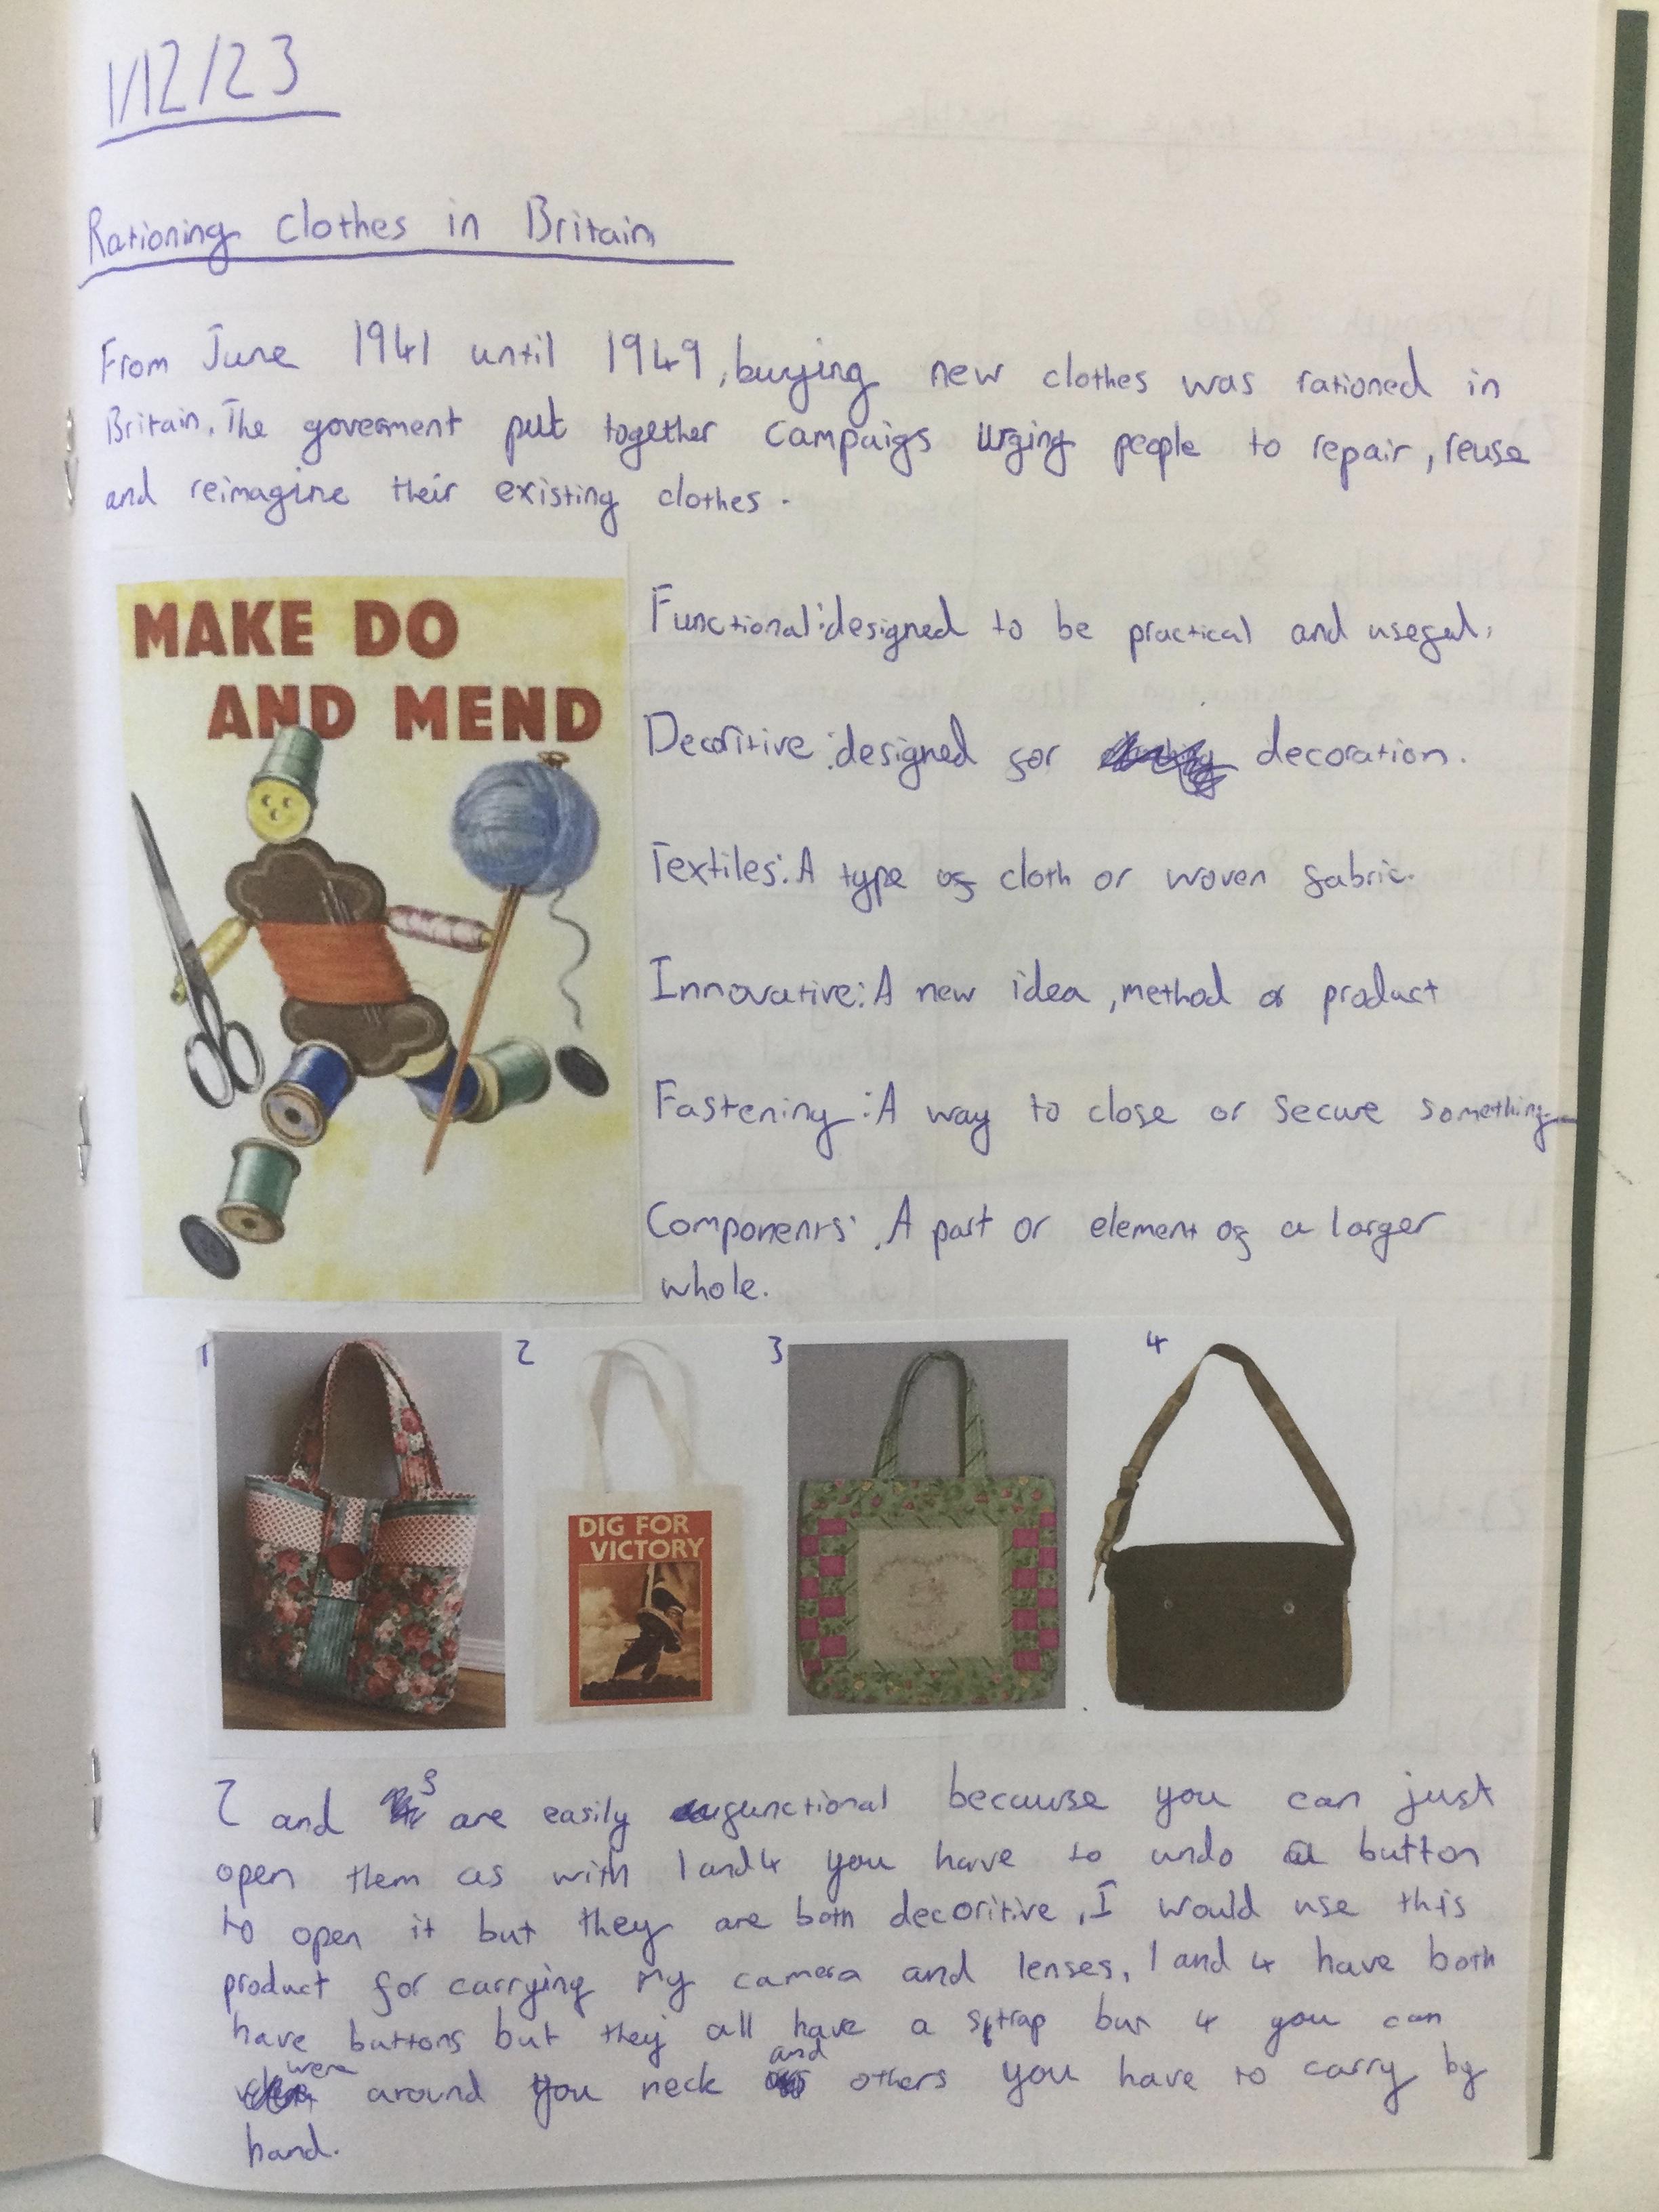 1/12/23
Rationing clothes in Britain
From June 1941 until 1949, buying new clothes was rationed in
Britain. The goverment put together campaigs urging people to repair, reuse
and reimagine their existing clothes.
MAKE DO
AND MEND
Functional: designed to be practical and useful.
Decoritive: designed for decoration.
Textiles: A type of cloth or woven fabric.
Innovative: A new idea, method or product
Fastening: A way to close or secure something
Components: A part or element of a larger
whole.
1 2 3 4
DIG FOR
VICTORY
2 and 3 are easily functional because you can just
open them as with 1 and 4 you have to undo a button
to open it but they are both decoritive, I would use this
product for carrying my camera and lenses, 1 and 4 have both
have buttons but they all have a strap but 4 you can
were around you neck and others you have to carry by
hand.